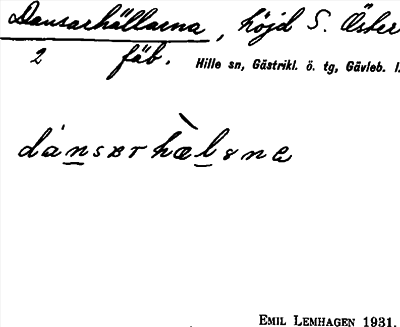 Dansarhällarna, höjd S. Öster
2 fäb. Hille sn, Gästrikl. ö. tg, Gävleb. l.
EMIL LEMHAGEN 1931.